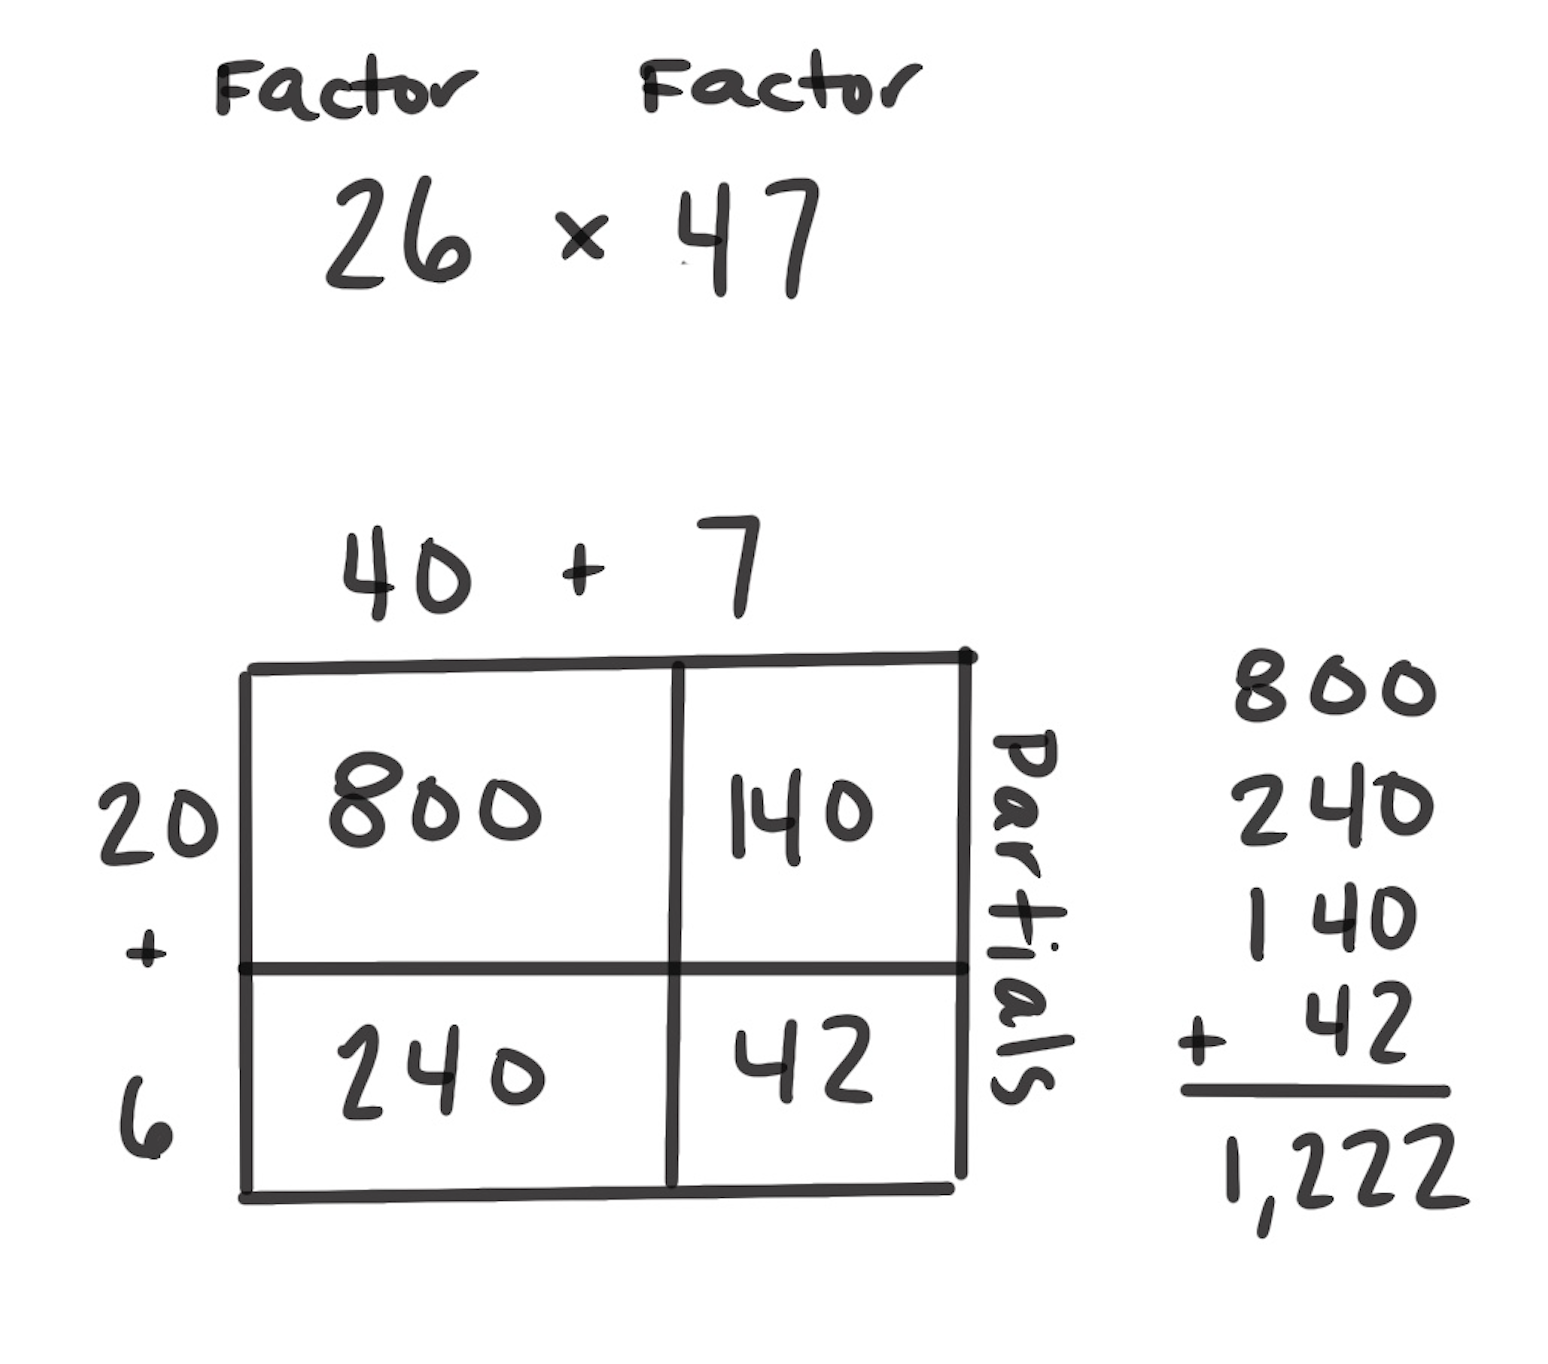 Factor Factor
26 × 47
40 + 7
20
+
6
800 140
240 42
Partials
800
240
140
+ 42
1,222